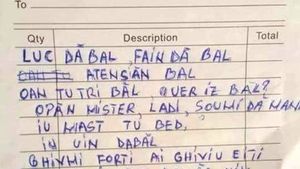 To
Qty Description Total
LUC DĂ BAL, FAIN DĂ BAL
ATENȘĂN BAL
OAN TU TRI BĂL, QUER IZ BĂL?
OPĂN MISTER, LADI, SOUMI DĂ MANI
IU MAST TU BED,
IU UIN DABĂL
GHIVMI FORTI AI GHIVIU EITI